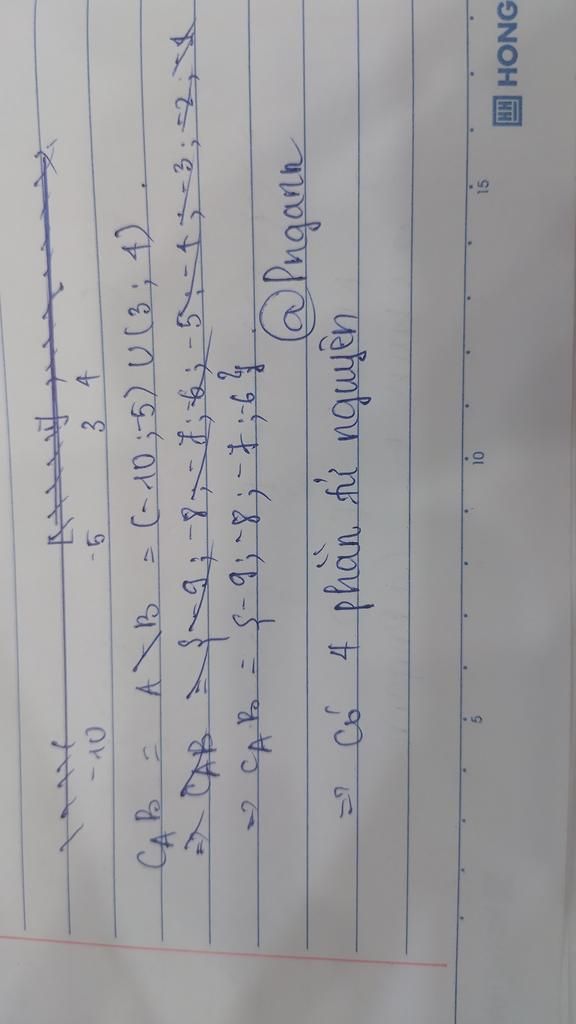 -10 -5 3 4
C_A B = A \ B = (-10 ; -5) ∪ (3 ; 4)
=> C_A B = {-9 ; -8 ; -7 ; -6 ; -5 ; -4 ; -3 ; -2 ; -1
=> C_A B = {-9 ; -8 ; -7 ; -6}
@Pnganh
=> Có 4 phần tử nguyên
5 10 15
HH HONG